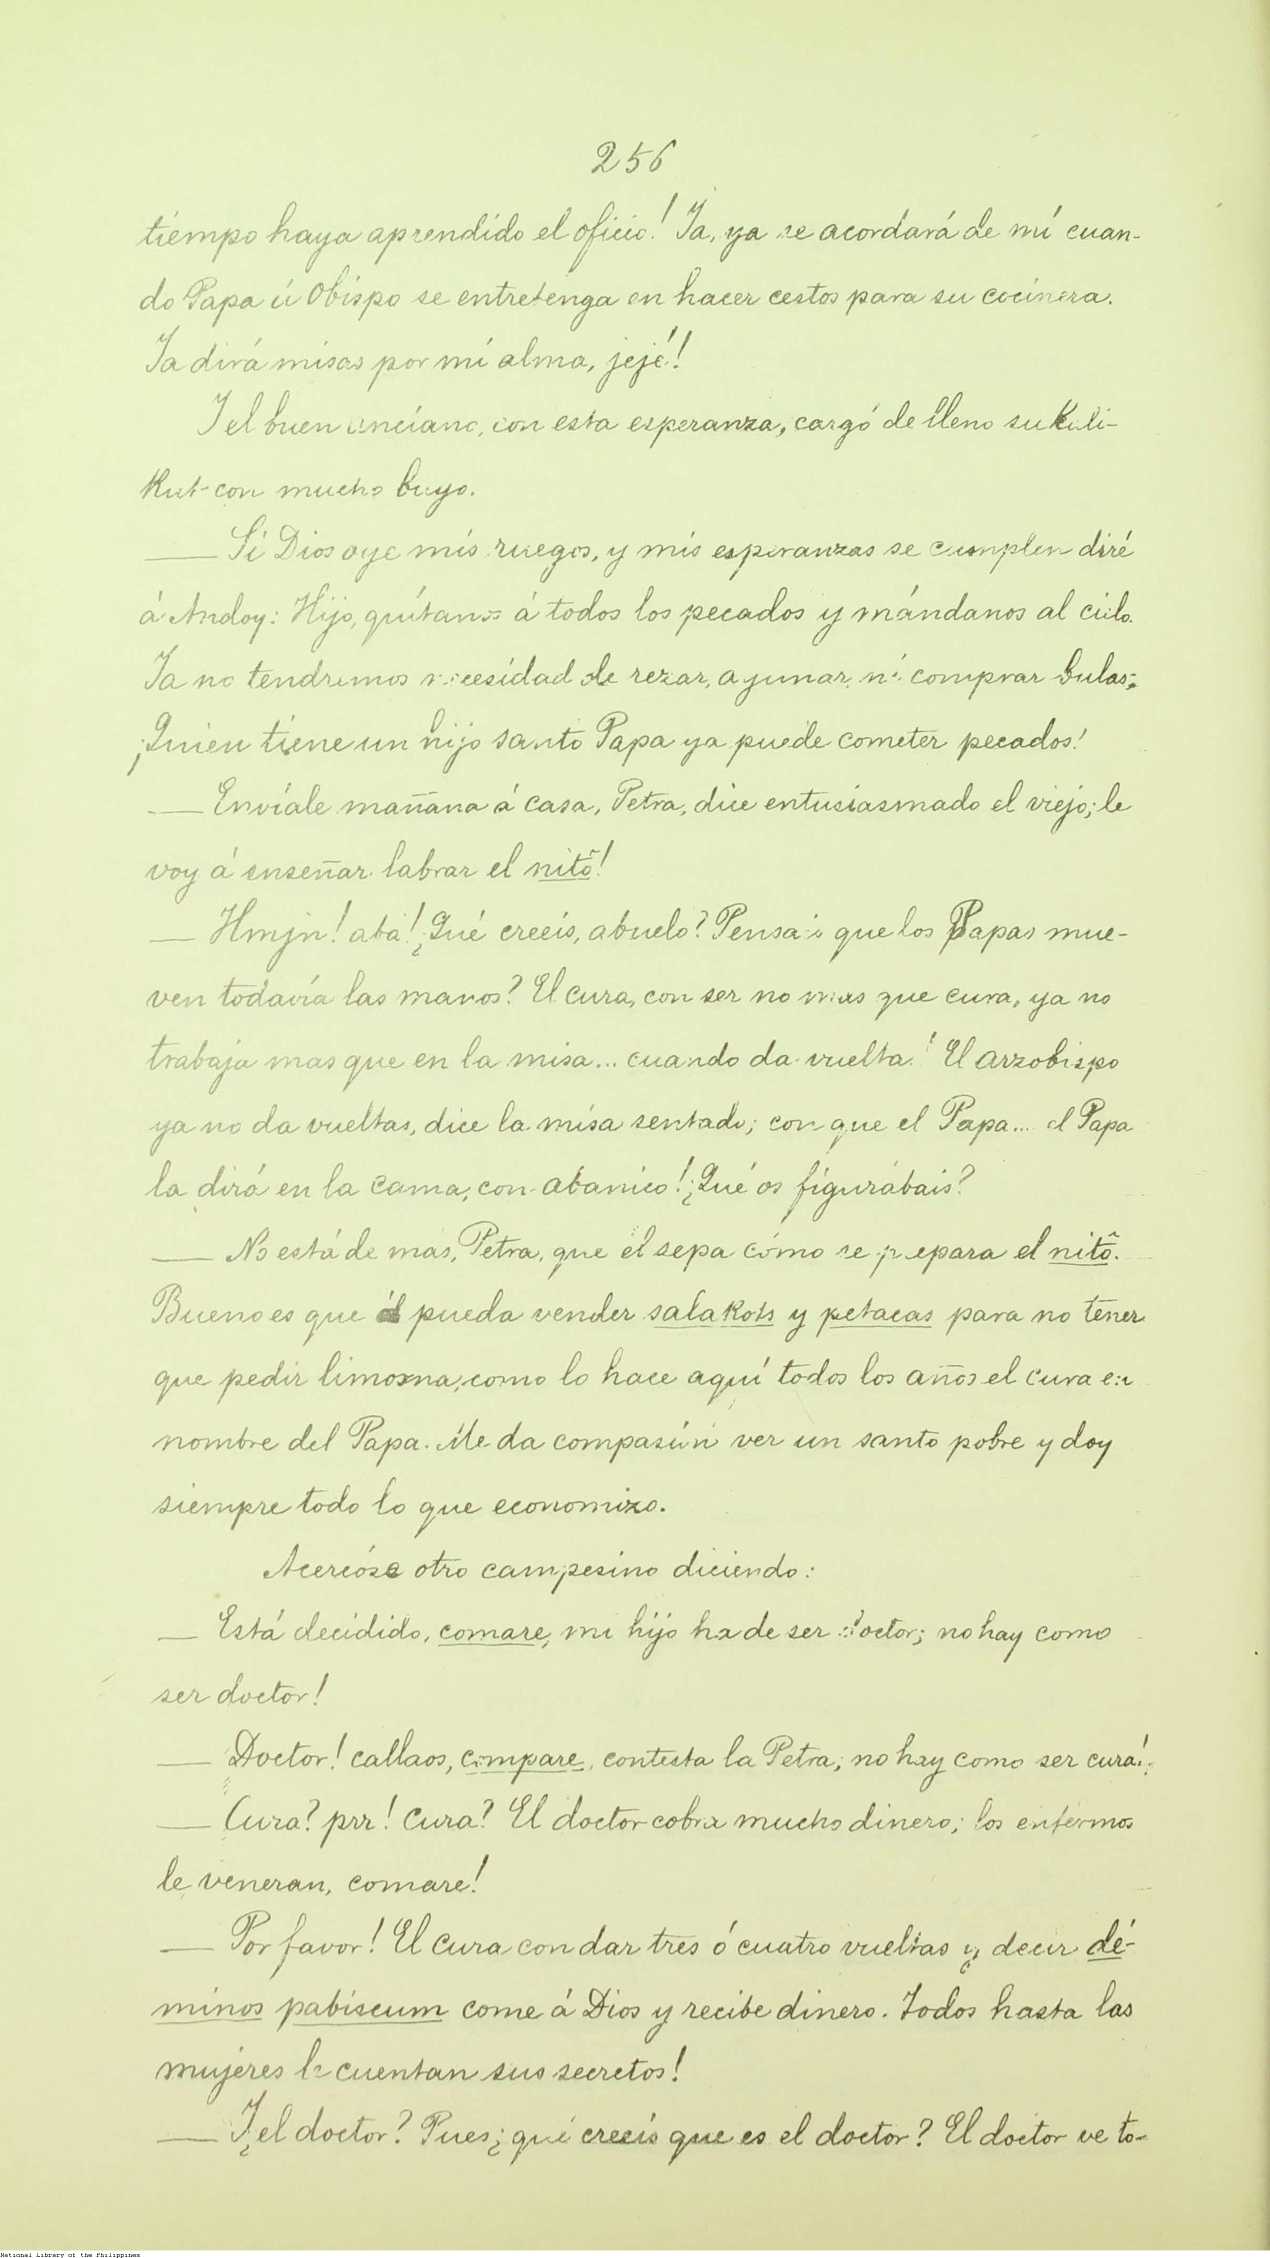 256
tiempo haya aprendido el oficio! Ya, ya se acordará de mí cuan-
do Papa ú Obispo se entretenga en hacer cestos para su cocinera.
Ya dirá misas por mi alma, jejé!
Y el buen anciano, con esta esperanza, cargó de lleno su kali-
kut con mucho buyo.
— Si Dios oye mis ruegos, y mis esperanzas se cumplen diré
á Andoy: Hijo, quítanos á todos los pecados y mándanos al cielo.
Ya no tendremos necesidad de rezar, ayunar, ni comprar bulas;
¡Quien tiene un hijo santo Papa ya puede cometer pecados!
— Envíale mañana á casa, Petra, dice entusiasmado el viejo; le
voy á enseñar labrar el nitõ!
— Hmjn! abá! ¿Qué creeis, abuelo? Pensais que los Papas mue-
ven todavía las manos? El cura, con ser no mas que cura, ya no
trabaja mas que en la misa... cuando da vuelta! El arzobispo
ya no da vueltas, dice la misa sentado; con que el Papa... el Papa
la dirá en la cama, con abanico! ¿Qué os figurábais?
— No está de mas, Petra, que él sepa cómo se prepara el nitõ.
Bueno es que él pueda vender salakots y petacas para no tener
que pedir limosna, como lo hace aquí todos los años el cura en
nombre del Papa. Me da compasión ver un santo pobre y doy
siempre todo lo que economizo.
Acercóse otro campesino diciendo:
— Está decidido, comare, mi hijo ha de ser doctor; no hay como
ser doctor!
— Doctor! callaos, compare, contesta la Petra; no hay como ser cura!
— Cura? prr! Cura? El doctor cobra mucho dinero; los enfermos
le veneran, comare!
— Por favor! El cura con dar tres ó cuatro vueltas y decir dé-
minos pabiscum come á Dios y recibe dinero. Todos hasta las
mujeres le cuentan sus secretos!
— Y ¿el doctor? Pues ¿qué creeis que es el doctor? El doctor ve to-
National Library of the Philippines